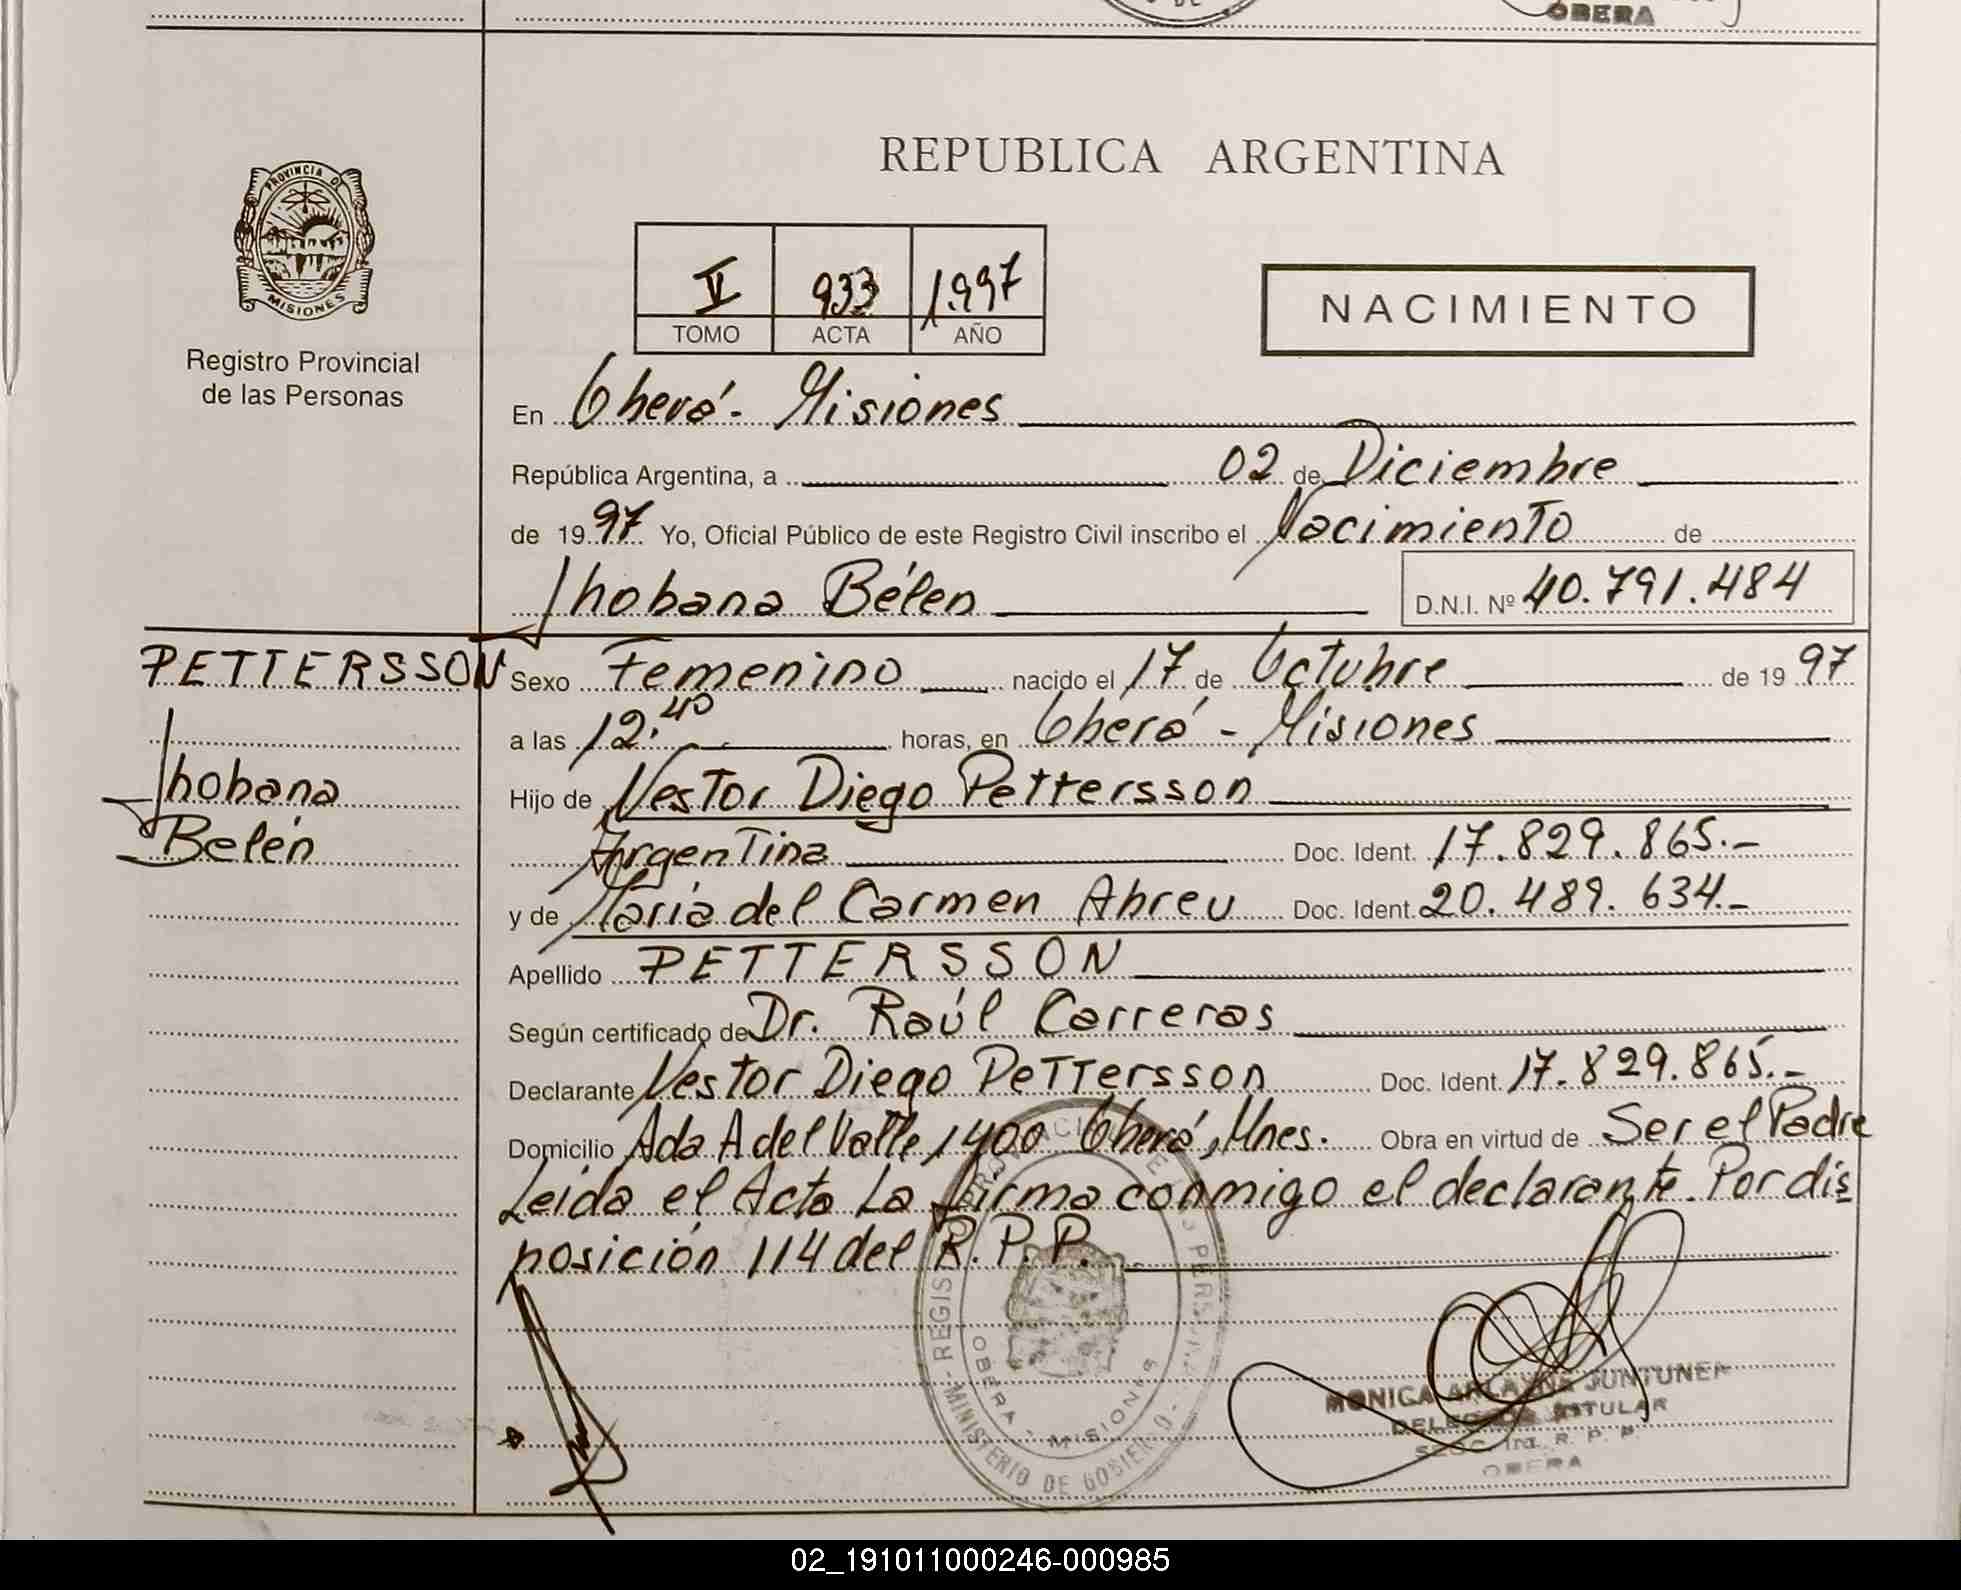 OBERA
REPUBLICA ARGENTINA
PROVINCIA DE
MISIONES
Registro Provincial
de las Personas
V 933 1.997
TOMO ACTA AÑO
NACIMIENTO
En Oberá - Misiones
República Argentina, a 02 de Diciembre
de 1997 Yo, Oficial Público de este Registro Civil inscribo el Nacimiento de
Jhobana Bélen D.N.I. Nº 40.791.484
PETTERSSON
Jhobana
Belén
Sexo Femenino nacido el 17 de Octubre de 1997
a las 12.40 horas, en Oberá - Misiones
Hijo de Nestor Diego Pettersson
Argentina Doc. Ident. 17.829.865.-
y de María del Carmen Abreu Doc. Ident. 20.489.634.-
Apellido PETTERSSON
Según certificado de Dr. Raúl Carreras
Declarante Nestor Diego Pettersson Doc. Ident. 17.829.865.-
Domicilio Ada A del Valle 1400 Oberá, Mnes. Obra en virtud de Ser el Padre
Leida el Acta La firma conmigo el declarante. Por dis
posición 114 del R.P.P.
MINISTERIO DE GOBIERNO
OBERA - MISIONES
MONICA JUNTUNEN
TITULAR
R. P. P.
OBERA
02_191011000246-000985